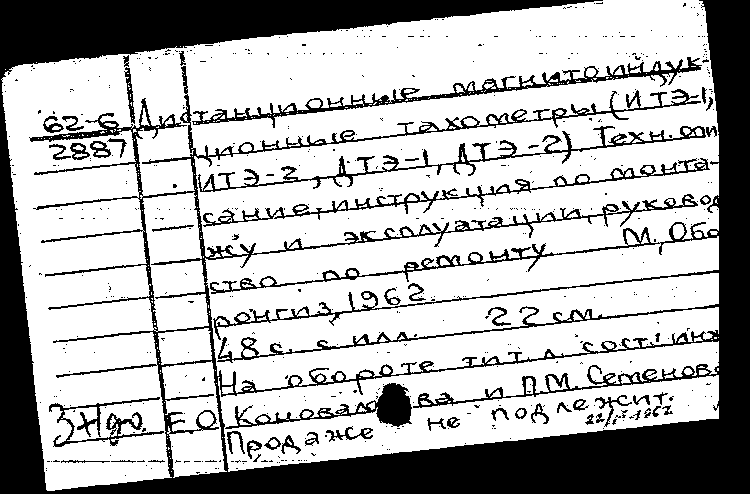 62-6 Дистанционные магнитоиндук-
2887 ционные тахометры (ИТЭ-1,
ИТЭ-2, ДТЭ-1, ДТЭ-2) Техн. опи
сание, инструкция по монта-
жу и эксплуатации, руковод
ство по ремонту М., Обо
ронгиз, 1962.
48 с. с илл. 22 см.
На обороте тит. л. сост.: инж
Е.О. Коновало ва и П.М. Семенов
Продаже не подлежит.